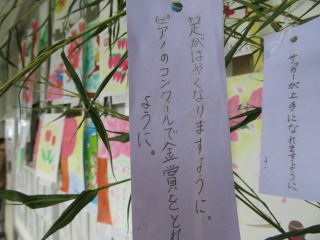 足がはやくなりますように。
ピアノのコンクールで金賞をとれ
ように。
サッカーが上手になれますように。